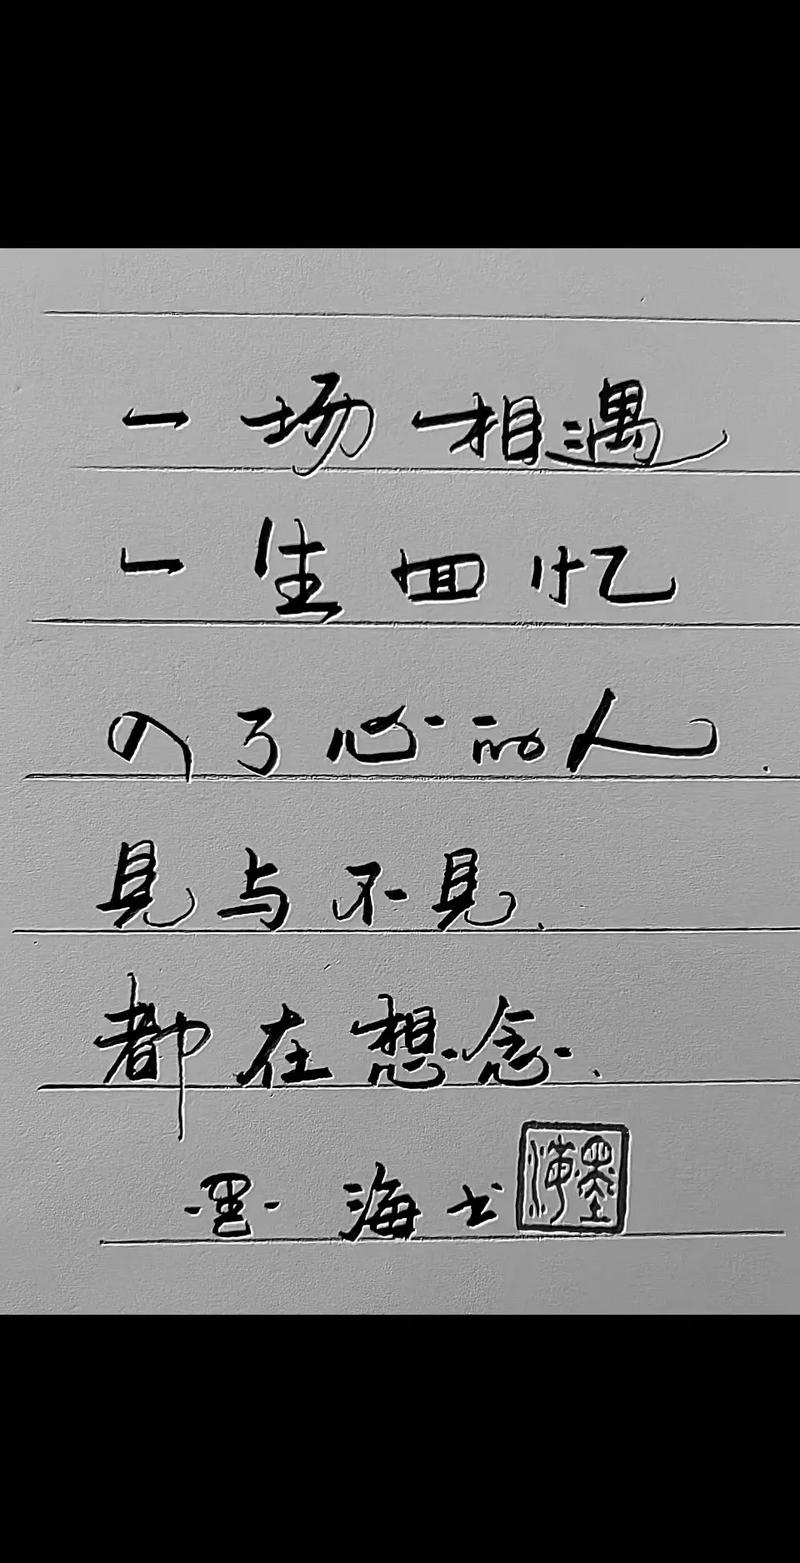 一场相遇
一生回忆
入了心的人.
见与不见.
都在想念.
墨海书
墨海